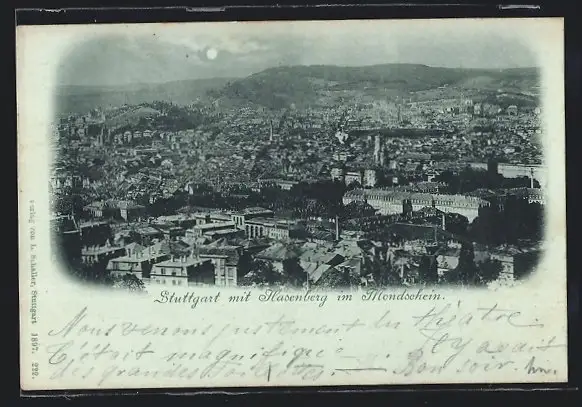 Stuttgart mit Hasenberg im Mondschein.
Nous venons justement du théâtre.
C'était magnifique — Il y avait
des grandes toilettes. — Bon soir.
Verlag von L. Schaller, Stuttgart 1897. 222.